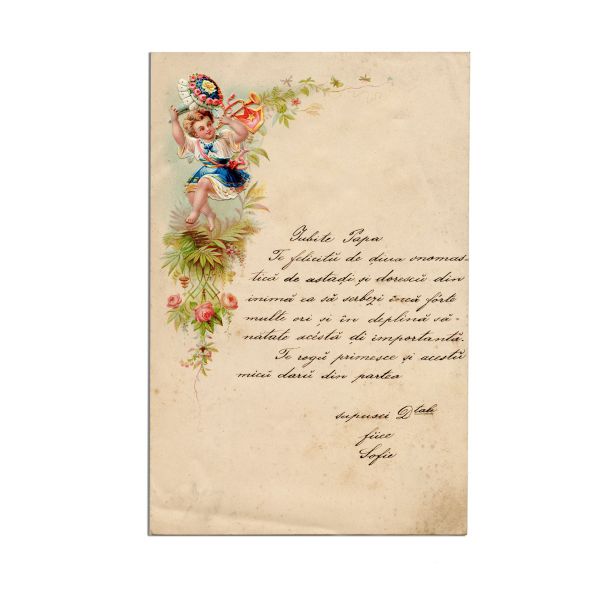 Iubite Papa
Te felicitŭ de diua onomas-
tică de astađi și dorescŭ din
inimă ca să serbezi încă fórte
multe ori și în deplină să-
nătate acéstă đi importantă.
Te rogŭ primesce și acestŭ
micŭ darŭ din partea
supusei Dtale
fiice
Sofie